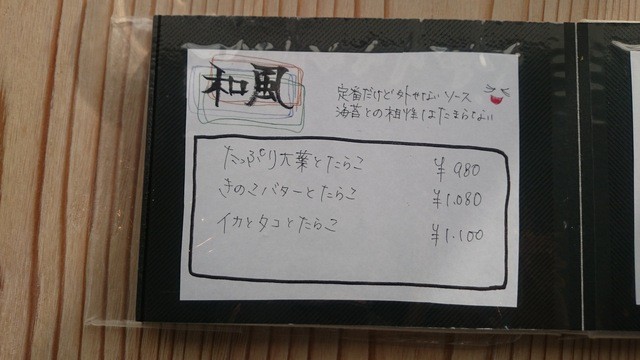 和風
定番だけど外せないソース
海苔との相性はたまらない
たっぷり大葉とたらこ ¥980
きのこバターとたらこ ¥1.080
イカとタコとたらこ ¥1.100